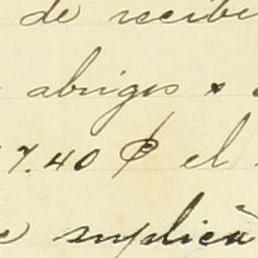 de recibi
abrigos
7.40 ₡ el
suplica